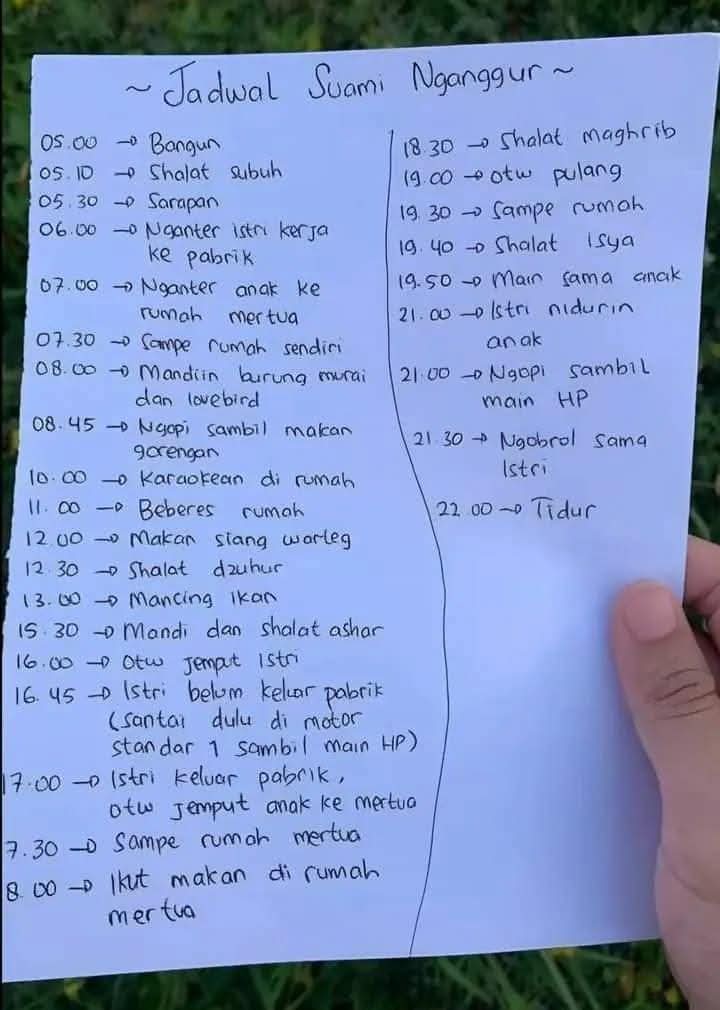 ~ Jadwal Suami Nganggur ~
05.00 → Bangun
05.10 → Shalat subuh
05.30 → Sarapan
06.00 → Nganter istri kerja
ke pabrik
07.00 → Nganter anak ke
rumah mertua
07.30 → Sampe rumah sendiri
08.00 → Mandiin burung murai
dan lovebird
08.45 → Ngopi sambil makan
gorengan
10.00 → Karaokean di rumah
11.00 → Beberes rumah
12.00 → Makan siang warteg
12.30 → Shalat dzuhur
13.00 → Mancing ikan
15.30 → Mandi dan shalat ashar
16.00 → Otw jemput istri
16.45 → Istri belum keluar pabrik
(santai dulu di motor
standar 1 sambil main HP)
17.00 → Istri keluar pabrik,
otw jemput anak ke mertua
7.30 → Sampe rumah mertua
8.00 → Ikut makan di rumah
mertua
18.30 → Shalat maghrib
19.00 → otw pulang
19.30 → Sampe rumah
19.40 → Shalat isya
19.50 → Main sama anak
21.00 → Istri nidurin
anak
21.00 → Ngopi sambil
main HP
21.30 → Ngobrol sama
Istri
22.00 → Tidur